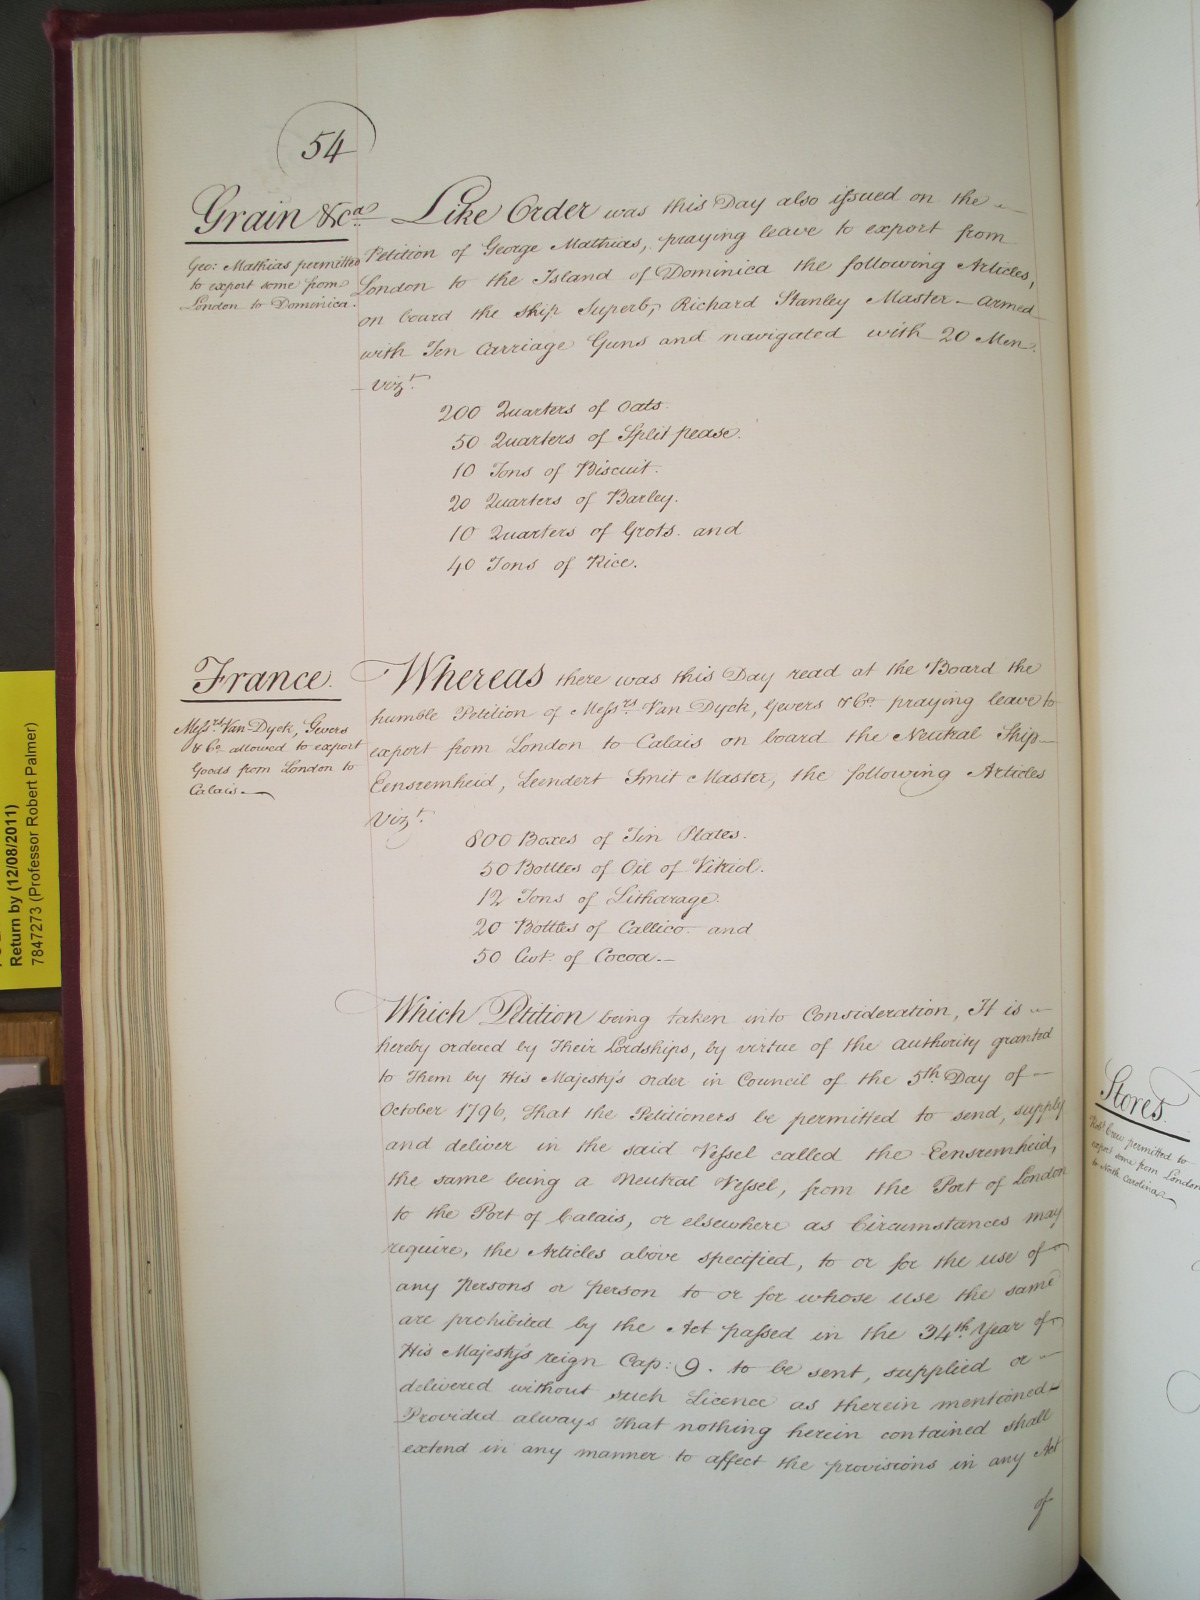 54
Grain &ca.
Geo: Mathias permitted
to export some from
London to Dominica.
Like Order was this Day also issued on the
Petition of George Mathias, praying leave to export from
London to the Island of Dominica the following Articles,
on board the ship Superb, Richard Stanley Master - armed
with Ten Carriage Guns and navigated with 20 Men.
- Vizt.
200 Quarters of Oats.
50 Quarters of Split pease.
10 Tons of Biscuit.
20 Quarters of Barley.
10 Quarters of Grots. and
40 Tons of Rice.
France.
Messrs. Van Dyck, Gevers
& Co. allowed to export
Goods from London to
Calais.
Whereas there was this Day read at the Board the
humble Petition of Messrs. Van Dyck, Gevers & Co. praying leave to
export from London to Calais on board the Neutral Ship
Eensremheid, Leendert Smit Master, the following Articles
Vizt.
800 Boxes of Tin Plates.
50 Bottles of Oil of Vitriol.
12 Tons of Litharage.
20 Bottles of Callico. and
50 Cwt. of Cocoa.
Which Petition being taken into Consideration, It is
hereby ordered by Their Lordships, by virtue of the authority granted
to Them by His Majesty's order in Council of the 5th. Day of
October 1796, That the Petitioners be permitted to send, supply
and deliver in the said Vessel called the Eensremheid,
the same being a Neutral Vessel, from the Port of London
to the Port of Calais, or elsewhere as Circumstances may
require, the Articles above specified, to or for the use of
any Persons or person to or for whose use the same
are prohibited by the Act passed in the 34th. Year of
His Majesty's reign Cap: 9. to be sent, supplied or
delivered without such Licence as therein mentioned-
Provided always That nothing herein contained shall
extend in any manner to affect the provisions in any Act
of
Return by (12/08/2011)
7847273 (Professor Robert Palmer)
Stores.
permitted to
export some from London
to North Carolina